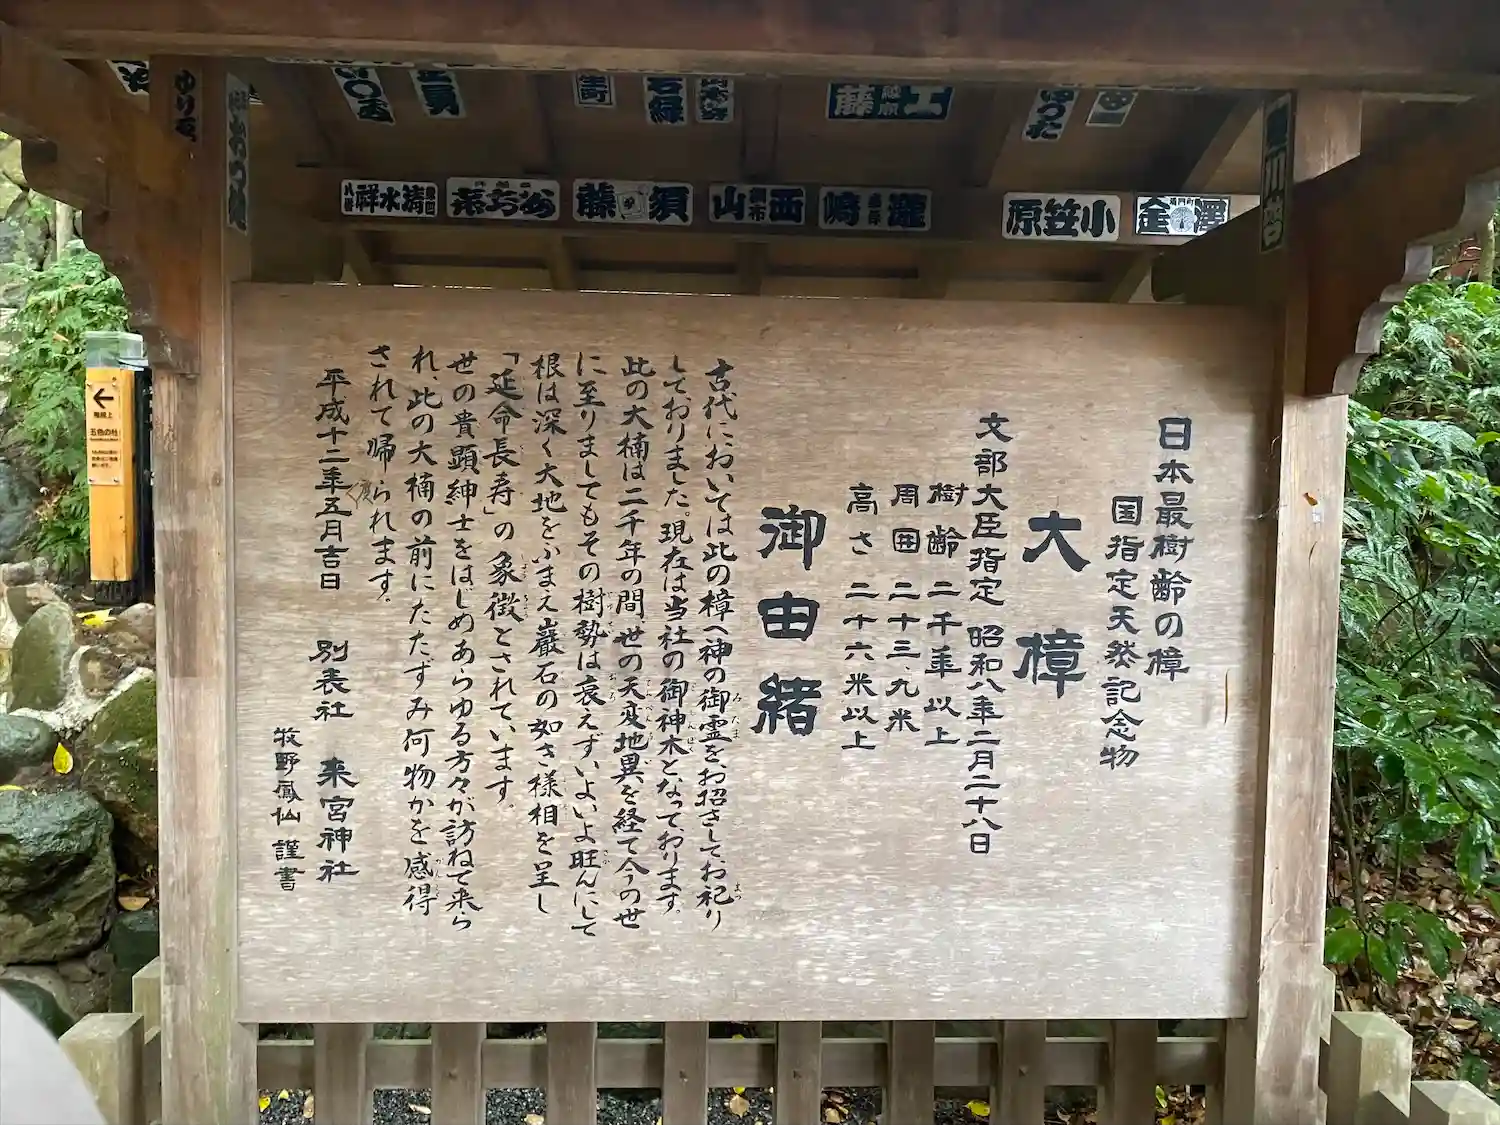 日本最樹齢の樟
国指定天然記念物
大樟
文部大臣指定 昭和八年二月二十八日
樹齢 二千年以上
周囲 二十三、九米
高さ 二十六米以上
御由緒
古代においては此の樟へ神の御霊をお招きしてお祀り
しておりました。現在は当社の御神木となっております。
此の大楠は二千年の間、世の天変地異を経て今の世
に至りましてもその樹勢は衰えず、いよいよ旺んにして
根は深く大地をふまえ巖石の如き様相を呈し
「延命長寿」の象徴とされています。
世の貴顕紳士をはじめあらゆる方々が訪ねて来ら
れ、此の大楠の前にたたずみ何物かを感得
されて帰られます。
平成十二年五月吉日
別表社 来宮神社
牧野鳳仙 謹書
小笠原
西山
須藤
清水祥
五色の杜